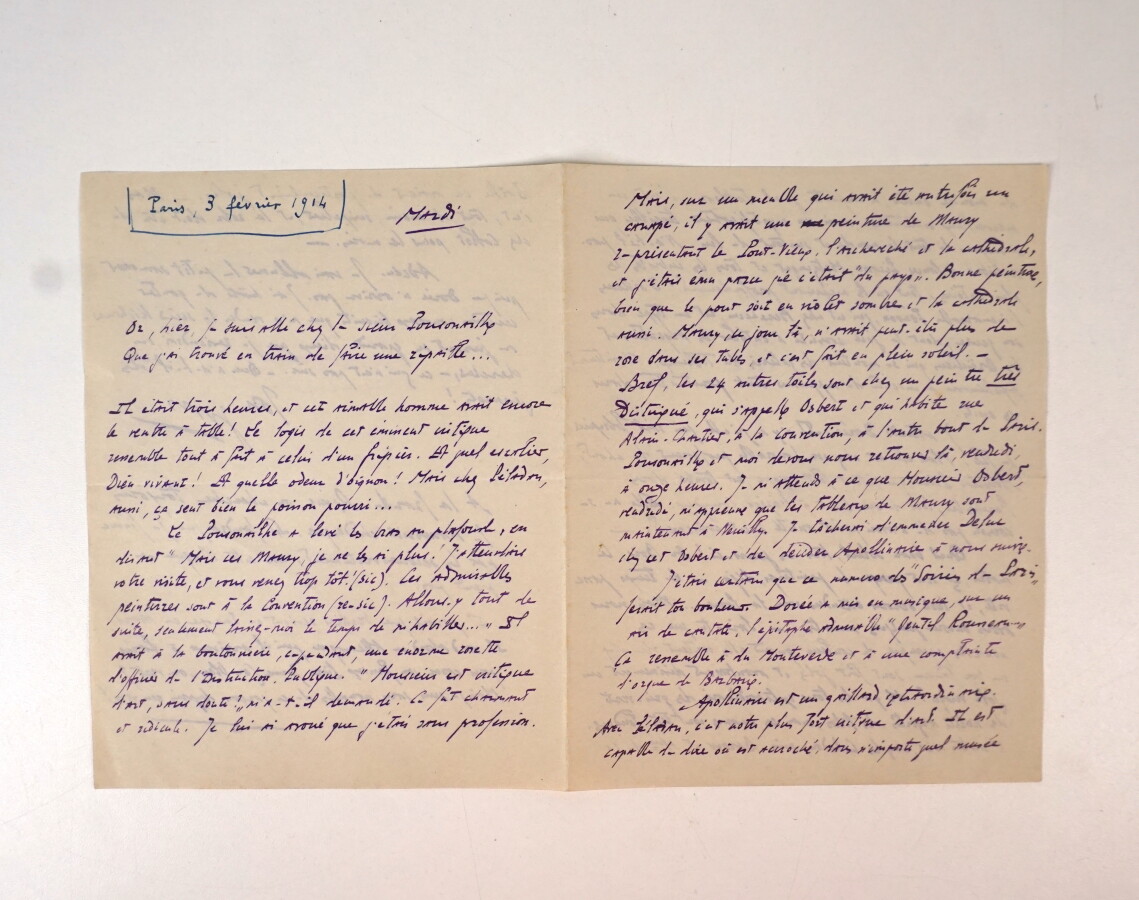 Paris, 3 février 1914
Mardi
Or, hier, je suis allé chez le sieur Ponsonailhe
Que j'ai trouvé en train de faire une ripaille...
Il était trois heures, et cet aimable homme avait encore
le ventre à table! Le logis de cet éminent critique
ressemble tout à fait à celui d'un fripier. Et quel escalier,
Dieu vivant! Et quelle odeur d'oignon! Mais chez Péladan,
aussi, ça sent bien le poisson pourri...
Le Ponsonailhe a levé les bras au plafond, en
disant "Mais ces Maury, je ne les ai plus! J'attendais
votre visite, et vous venez trop tôt! (sic). Ces admirables
peintures sont à la Convention (re-sic). Allons-y tout de
suite, seulement laissez-moi le temps de m'habiller..." Il
avait à la boutonnière, cependant, une énorme rosette
d'officier de l'Instruction Publique. "Monsieur est critique
d'art, sans doute?" m'a-t-il demandé. Ce fut charmant
et ridicule. Je lui ai avoué que j'étais sans profession.
Mais, sur un meuble qui avait été autrefois un
canapé, il y avait une peinture de Maury
représentant le Pont-Vieux, l'archevêché et la cathédrale,
et j'étais ému parce que c'était "du pays". Bonne peinture,
bien que le pont soit en violet sombre et la cathédrale
aussi. Maury, ce jour là, n'avait peut-être plus de
rose dans ses tubes, et c'est fait en plein soleil. —
Bref, les 24 autres toiles sont chez un peintre très
Distingué, qui s'appelle Osbert et qui habite rue
Alain-Chartier, à la Convention, à l'autre bout de Paris.
Ponsonailhe et moi devons nous retrouver là, vendredi,
à onze heures. Je m'attends à ce que Monsieur Osbert,
vendredi, m'apprenne que les tableaux de Maury sont
maintenant à Neuilly. Je tâcherai d'emmener Defue
chez cet Osbert et de décider Apollinaire à nous suivre.
J'étais certain que ce numéro des "Soirées de Paris"
ferait ton bonheur. Dorée a mis en musique, sur un
air de cantate, l'épitaphe admirable "Gentil Rousseau"
Ça ressemble à du Monteverde et à une complainte
d'orgue de Barbarie.
Apollinaire est un gaillard extraordinaire.
Avec Péladan, c'est notre plus fort critique d'art. Il est
capable de dire où est accroché, dans n'importe quel musée